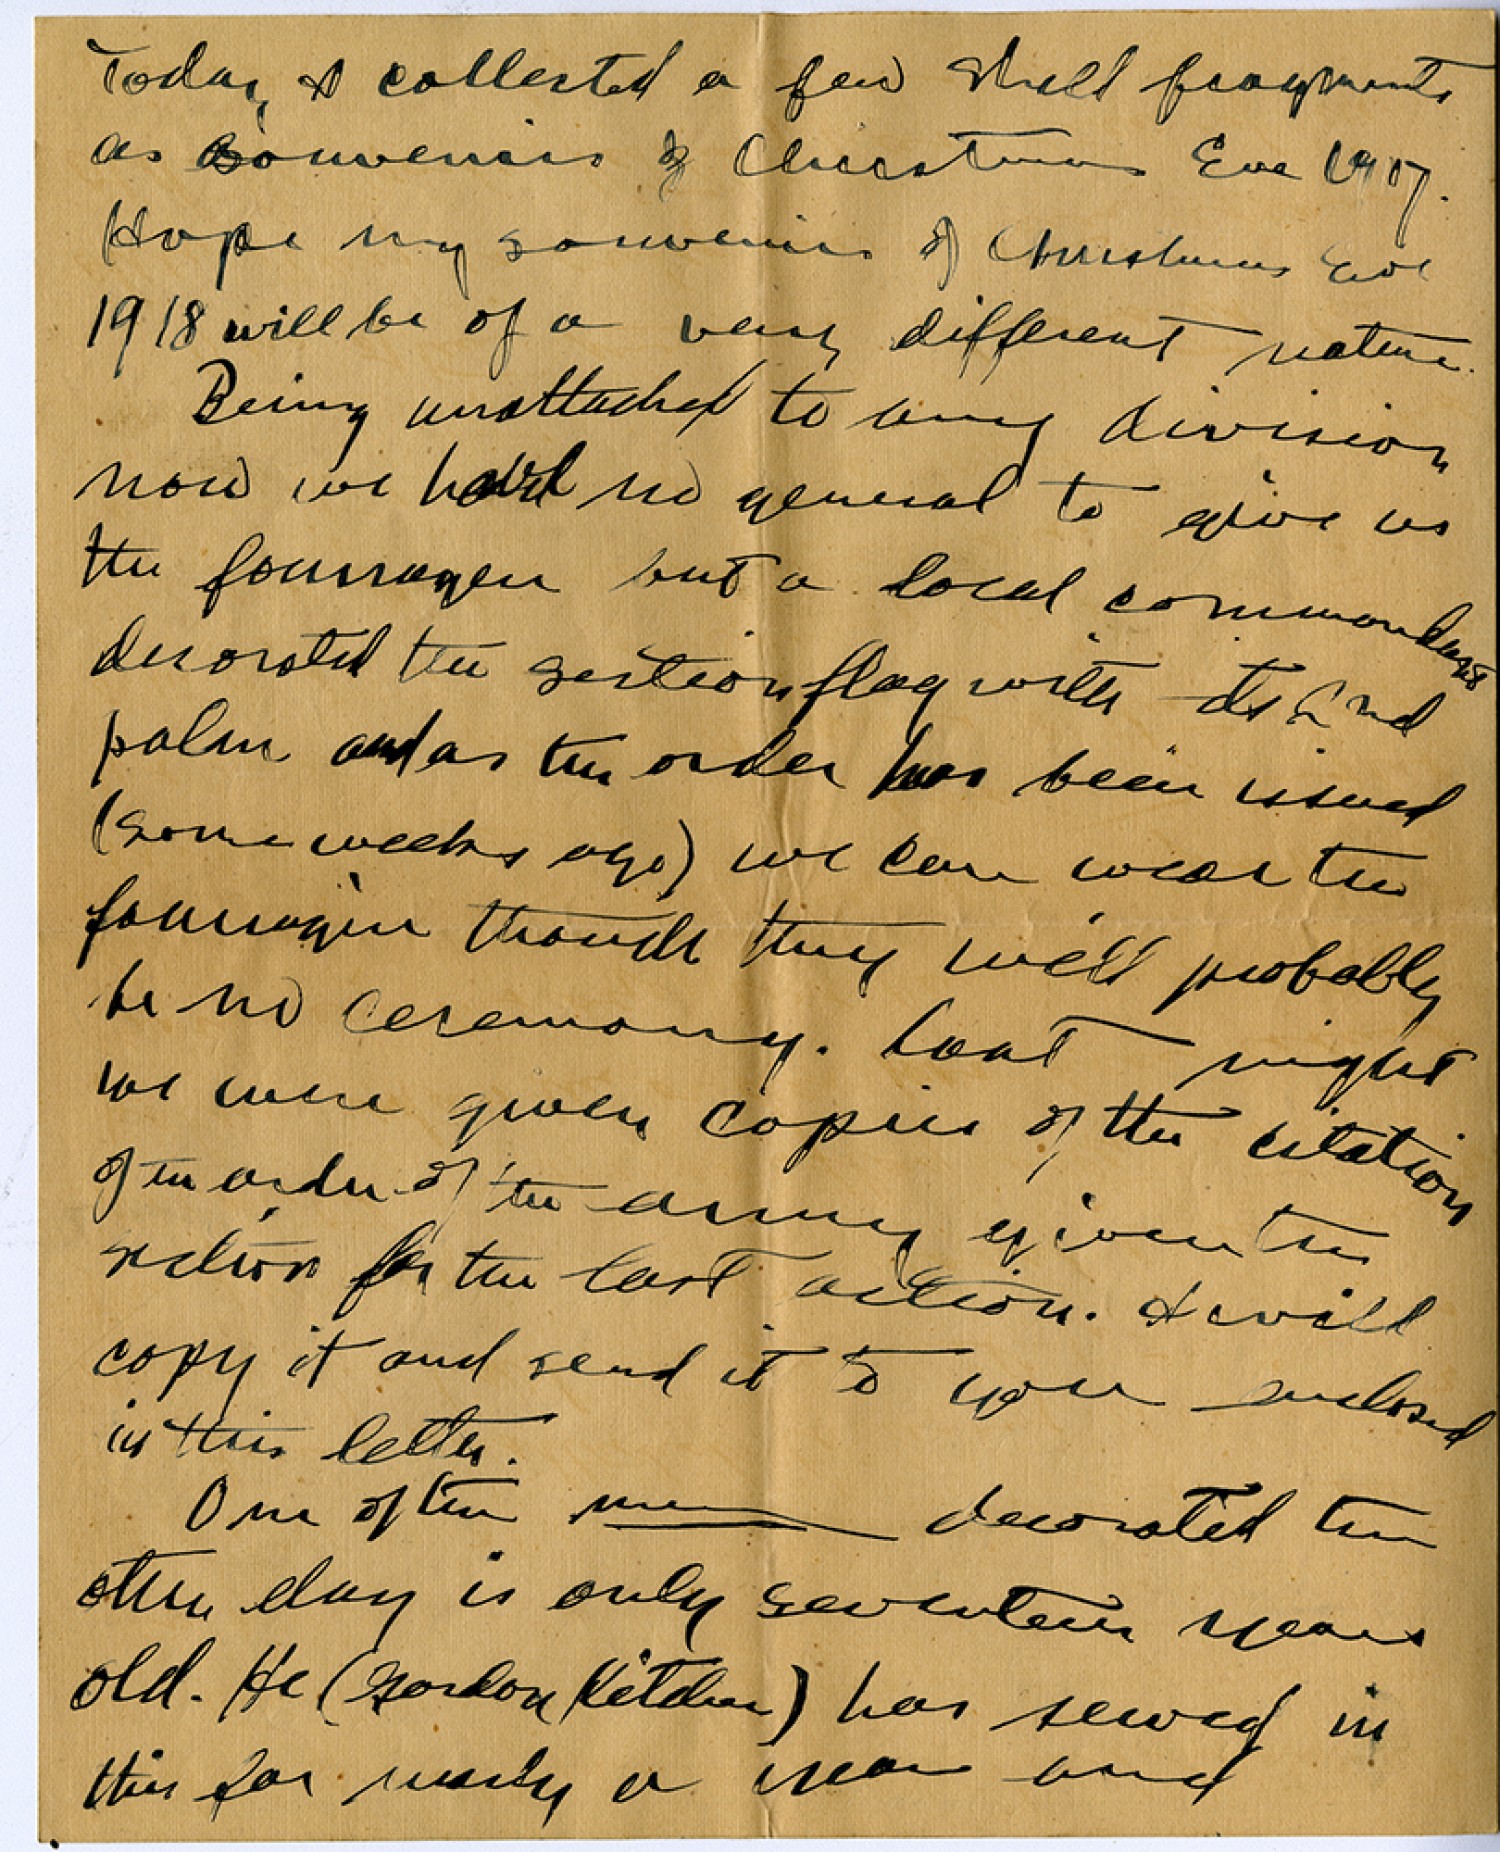 Today I collected a few shell fragments
as souvenirs of Christmas Eve 1917.
Hope my souvenirs of Christmas Eve
1918 will be of a very different nature.
Being unattached to any division
now we have no general to give us
the fourragere but a local commandant
decorated the section flag with its 2nd
palm and as the order has been issued
(some weeks ago) we can wear the
fourragere though they will probably
be no ceremony. Last night
we were given copies of the citation
of the order of the army given the
section for the last action. I will
copy it and send it to you enclosed
in this letter.
One of the men decorated the
other day is only seventeen years
old. He (Gordon Kitchen) has served in
this for nearly a year and